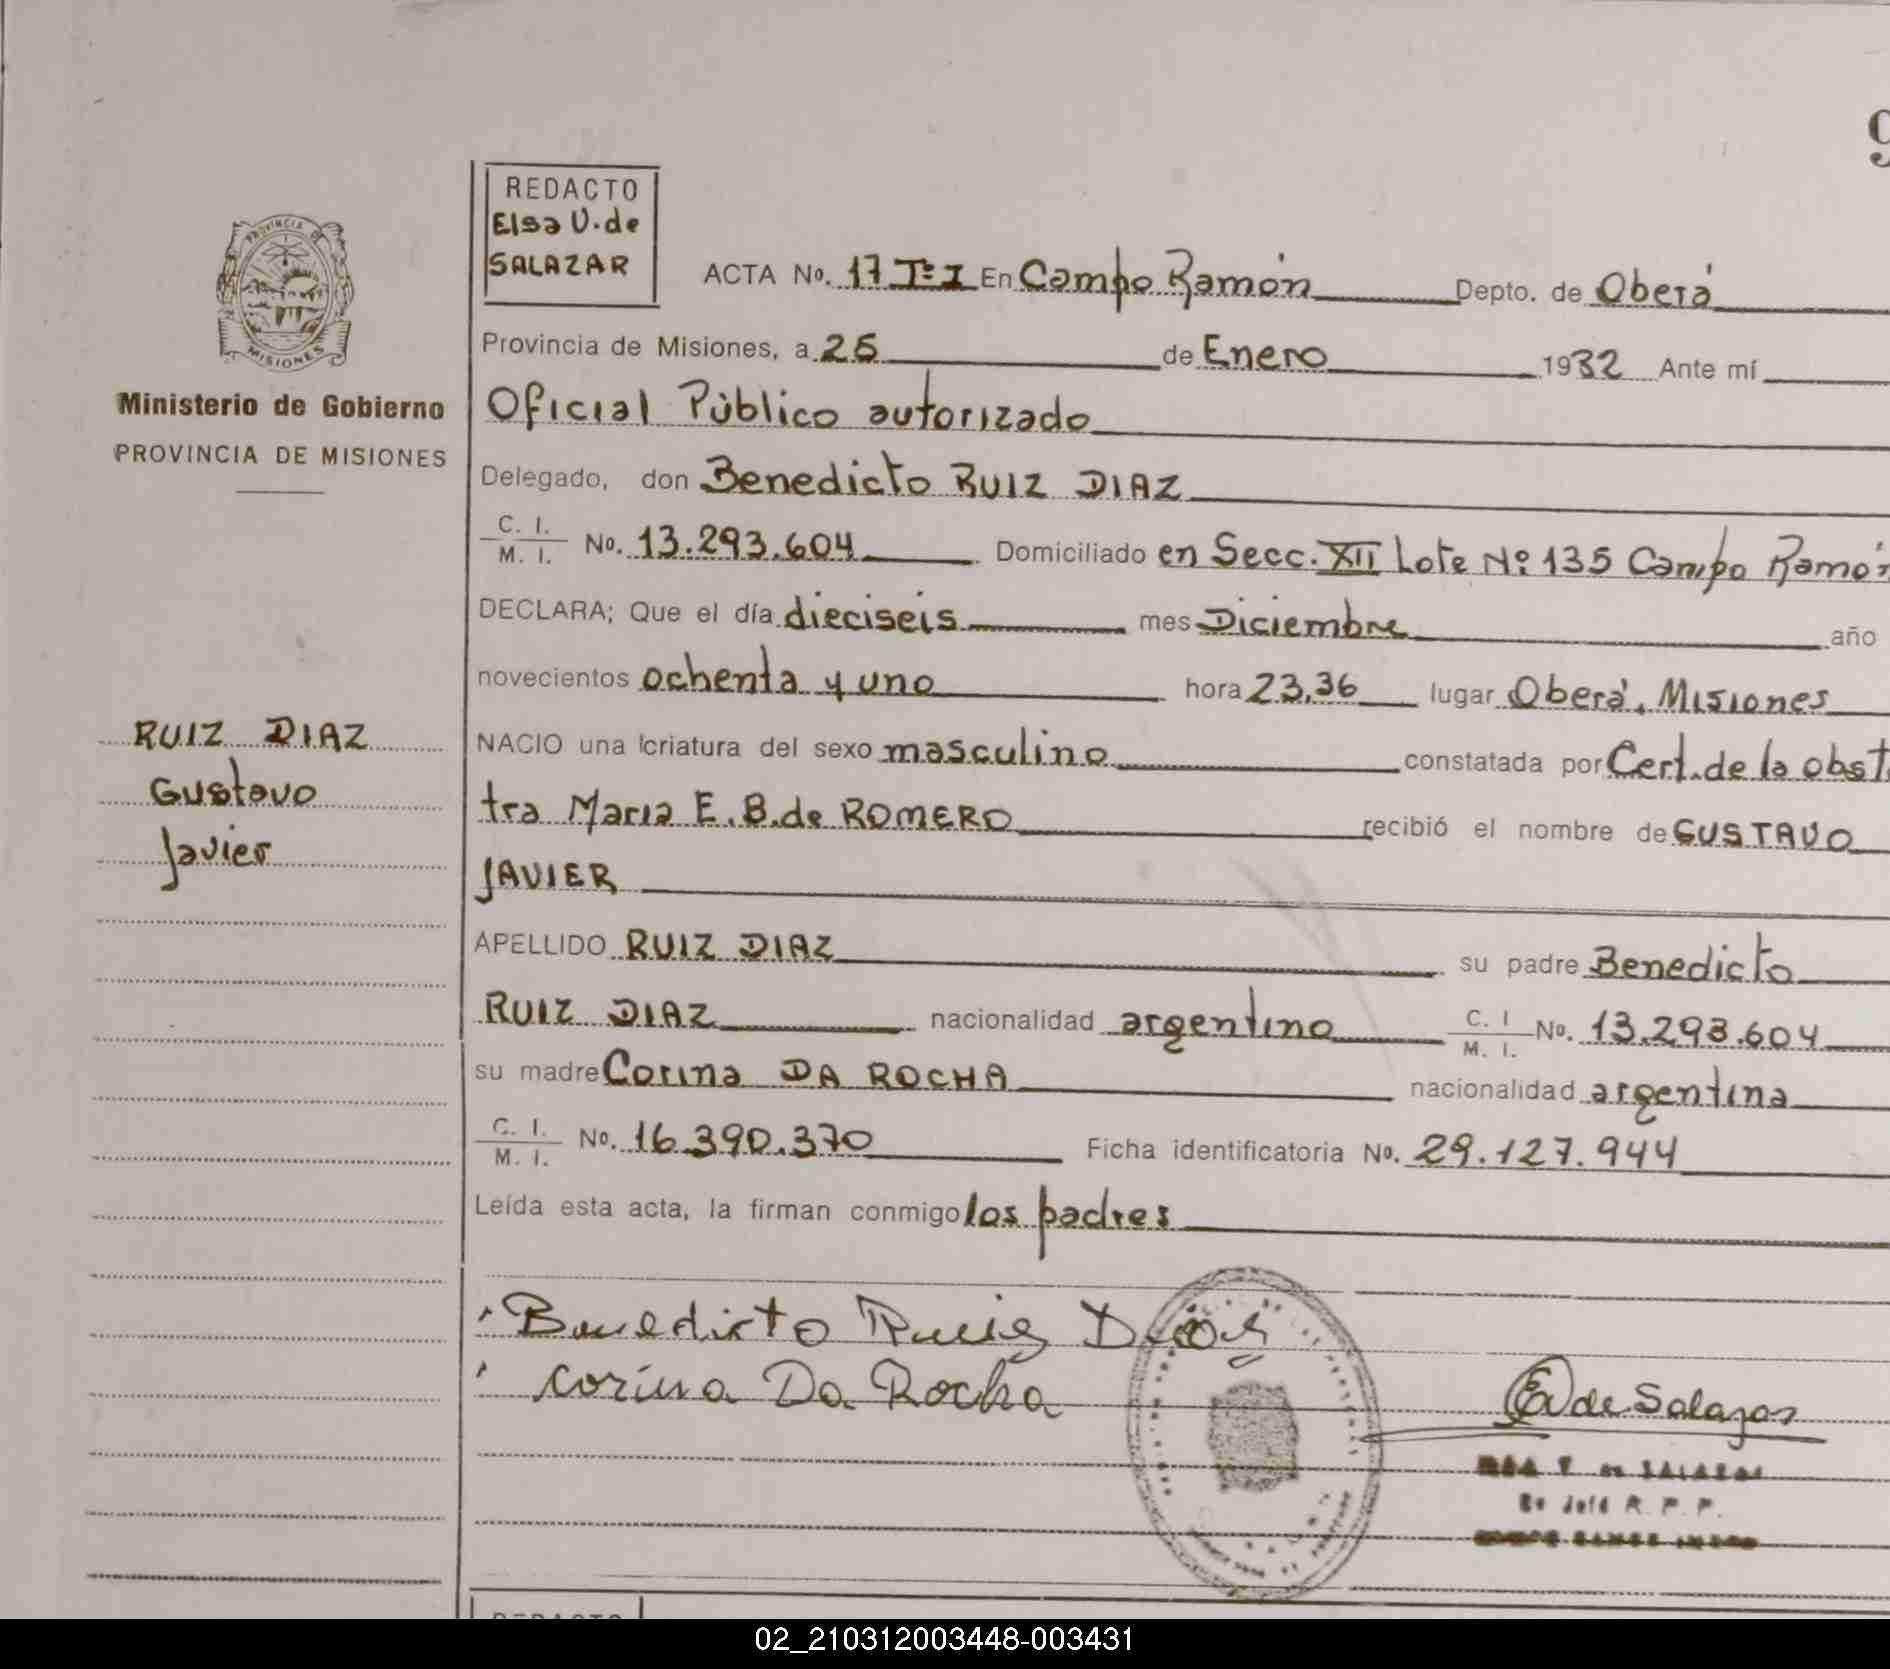 9
REDACTO
Elsa V. de
SALAZAR
PROVINCIA DE
MISIONES
Ministerio de Gobierno
PROVINCIA DE MISIONES
RUIZ DIAZ
Gustavo
Javier
ACTA No. 17 Tº I En Campo Ramón Depto. de Oberá
Provincia de Misiones, a 26 de Enero 1982 Ante mí
Oficial Público autorizado
Delegado, don Benedicto RUIZ DIAZ
C. I. / M. I. No. 13.293.604 Domiciliado en Secc. XII Lote Nº 135 Campo Ramón
DECLARA; Que el día dieciseis mes Diciembre año
novecientos ochenta y uno hora 23,36 lugar Oberá, Misiones
NACIO una criatura del sexo masculino constatada por Cert. de la obst
tra Maria E. B. de ROMERO recibió el nombre de GUSTAVO
JAVIER
APELLIDO RUIZ DIAZ su padre Benedicto
RUIZ DIAZ nacionalidad argentino C. I / M. I. No. 13.293.604
su madre Corina DA ROCHA nacionalidad argentina
C. I. / M. I. No. 16.390.370 Ficha identificatoria No. 29.127.944
Leída esta acta, la firman conmigo los padres
Benedicto Ruiz Diaz
Corina Da Rocha
EV de Salazar
de SALAZAR
R. P. P.
REDACTO
02_210312003448-003431